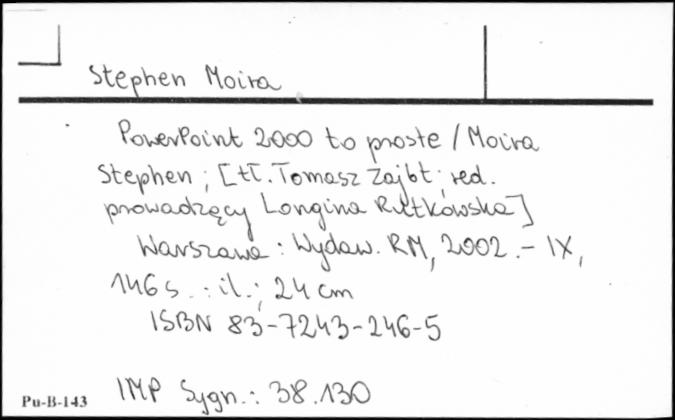 Stephen Moira
PowerPoint 2000 to proste / Moira
Stephen ; [tł. Tomasz Zajbt ; red.
prowadzący Longina Rutkowska]
Warszawa : Wydaw. RM, 2002 . - IX,
146 s. : il. ; 24 cm
ISBN 83-7243-246-5
Pu-B-143 IMP Sygn.: 38.130